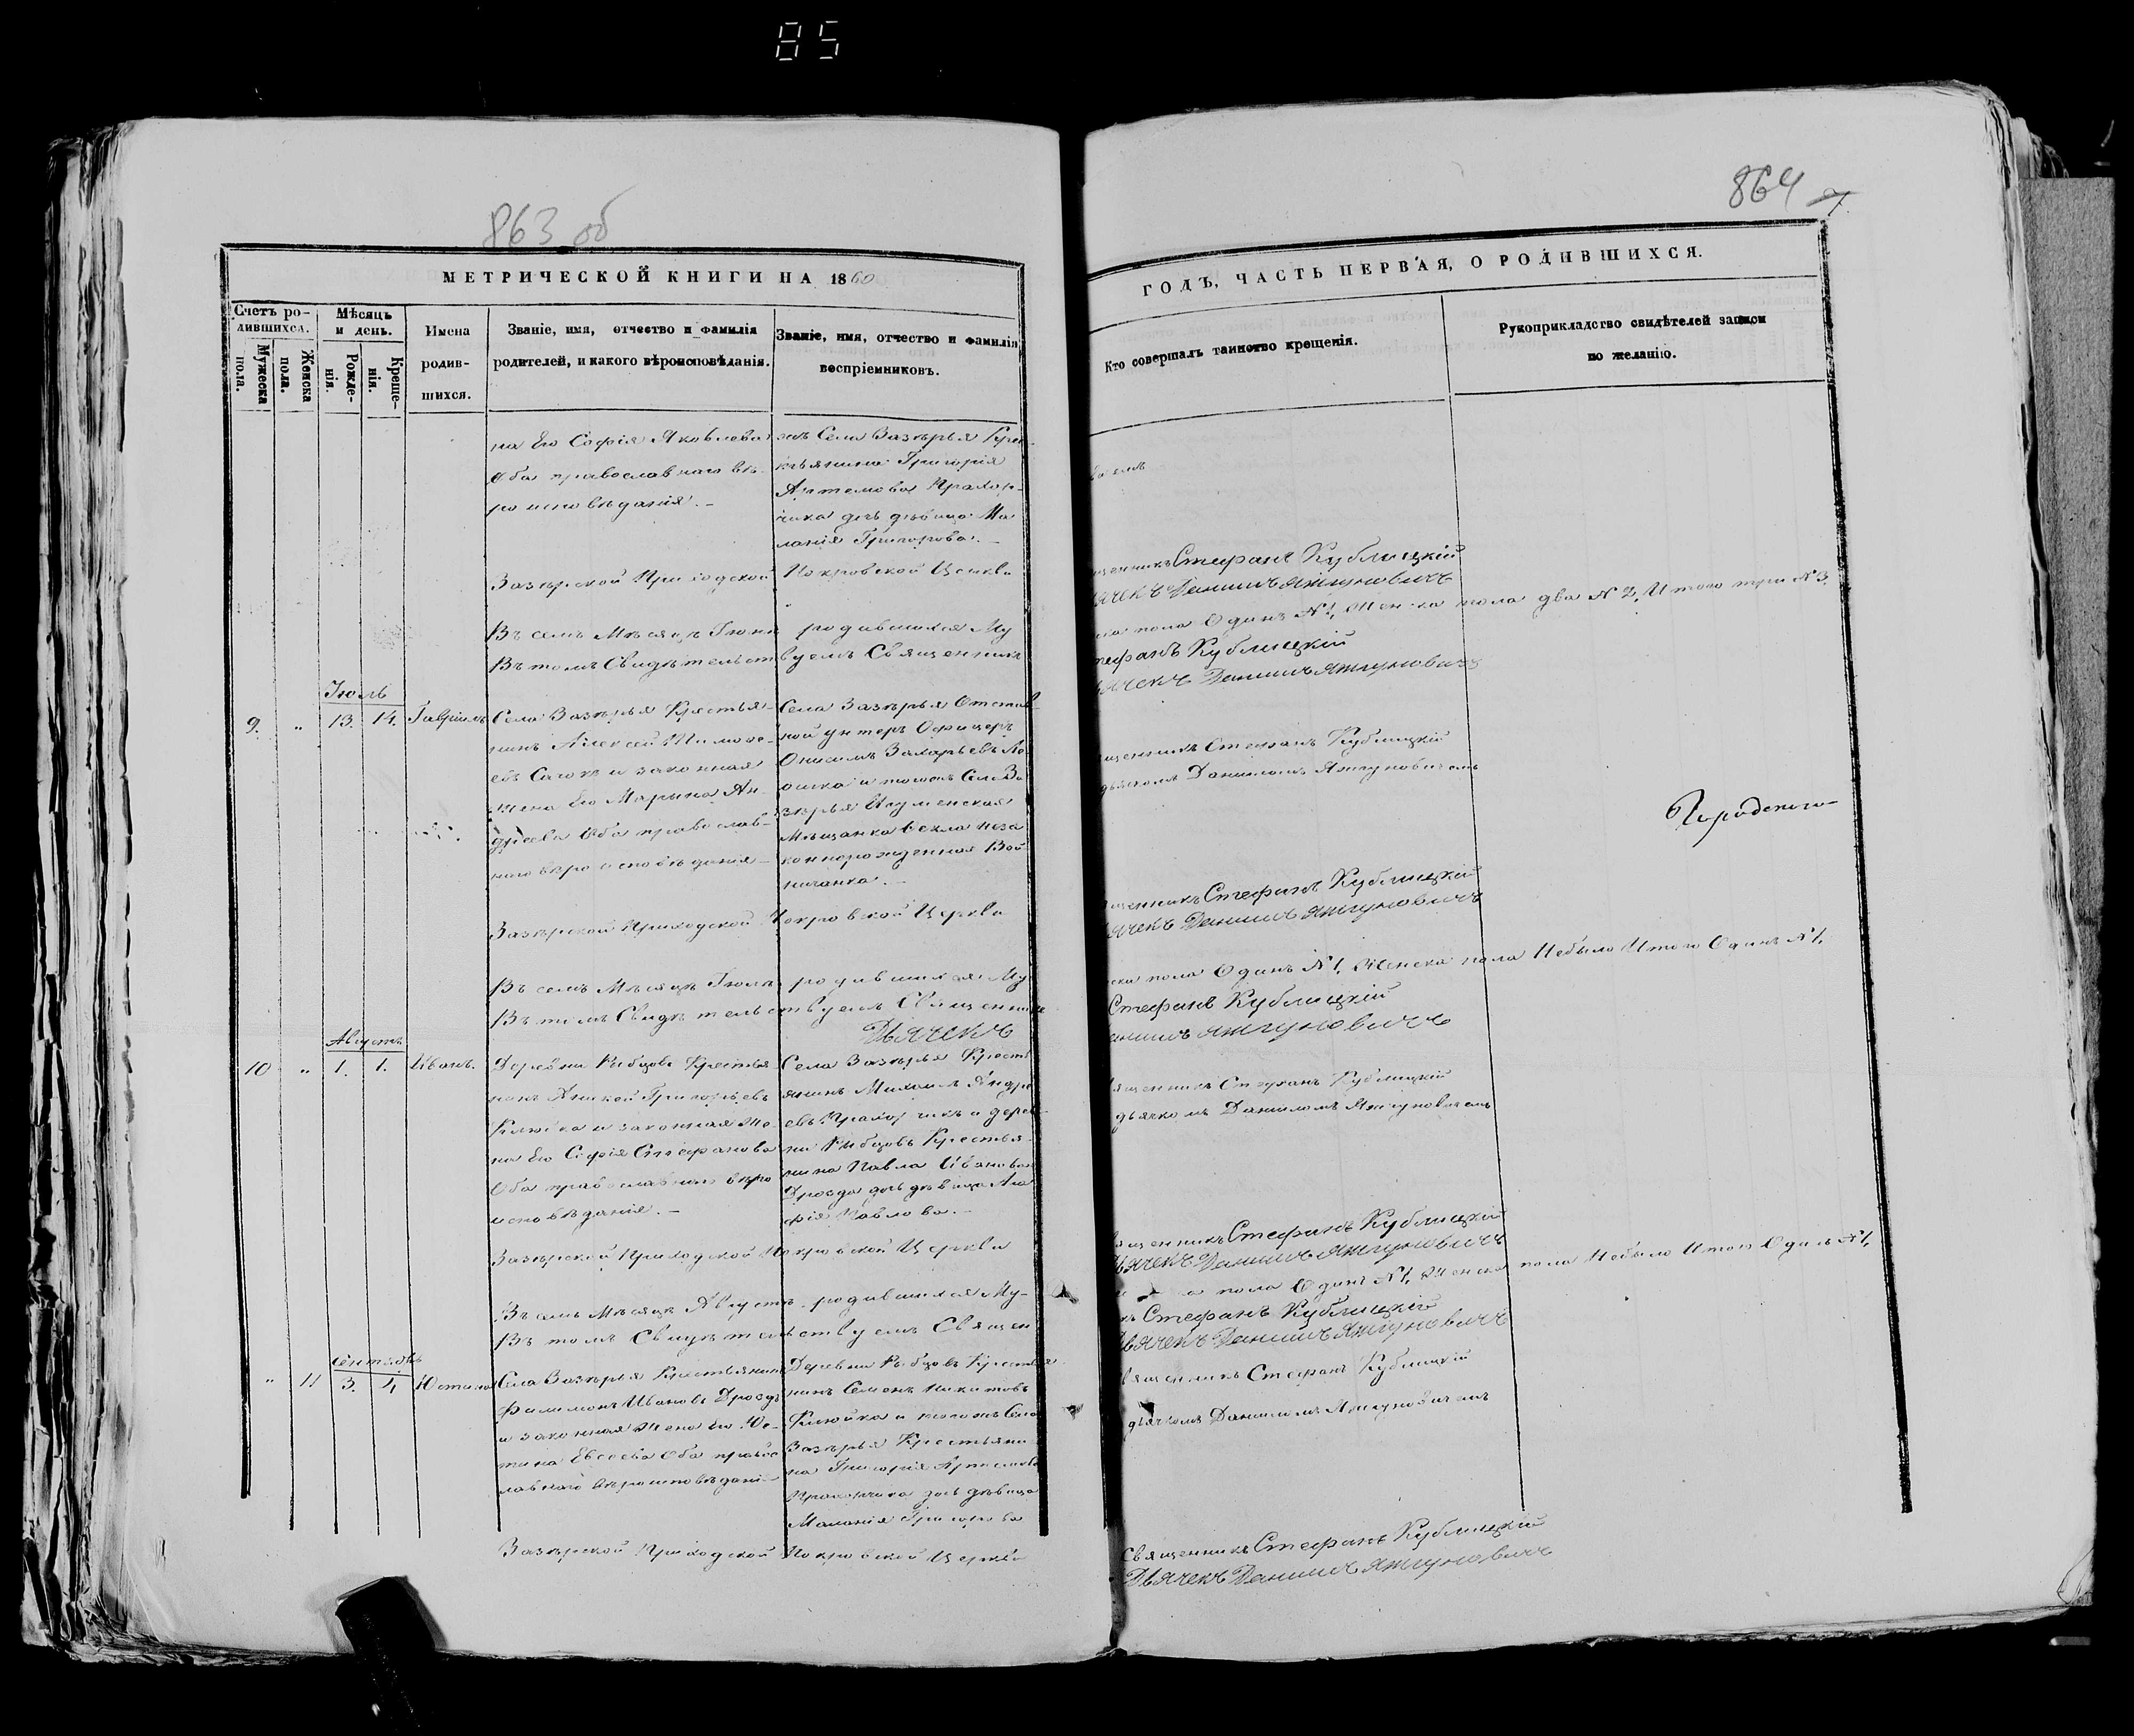 85
863 об
864
МЕТРИЧЕСКОЙ КНИГИ НА 1860
Счетъ ро-
дившихся.
Мужеска
пола.
Женска
пола.
Мѣсяцъ
и день.
Рожде-
нія.
Креще-
нія.
Имена
родив-
шихся.
Званіе, имя, отчество и фамилія
родителей, и какого вѣроисповѣданія.
Званіе, имя, отчество и фамилія
воспріемниковъ.
на Его Софія Яковлева
Оба православнаго вѣ-
роисповѣданія. –
Села Вазѣрья Крес-
тьянина Григорія
Артемова Прахор-
чика дочь дѣвица Ма
ланія Григорова. –
Вазѣрской Приходской Покровской Церкви
Въ семъ Мѣсяцѣ Іюнѣ родившихся Му
Въ томъ Свидѣтельствуемъ Священникъ
Іюль
9. " 13. 14. Гавріилъ
Села Вазѣрья Крестья-
нинъ Алексей Тимофе-
евъ и законная
жена Его Марьяна Ан-
дреева Оба православ-
наго вѣроисповѣданія –
Села Вазѣрья Отстав-
ной унтеръ Офицеръ
Онисимъ Захарьевъ
и тогожъ Села Ва
зѣрья Игуменская
Мѣщанка Векла неза
коннорожденная Вой
ничанка. –
Вазѣрской Приходской Покровской Церкви
Въ семъ Мѣсяцѣ Іюлѣ родившихся Му
Въ томъ Свидѣтельствуемъ Священникъ
Дьячекъ
Августъ
10 " 1. 1. Иванъ.
Деревни Рыбцовъ Крестья
нинъ Аникей Григорьевъ
Клюйка и законная Же-
на Его Софія Стефанова
Оба православнаго вѣро
исповѣданія. –
Села Вазѣрья Кресть
янинъ Михаилъ Андре
евъ Прахорчикъ и дерев-
ни Рыбцовъ Крестья-
нина Павла Иванова
Дрозда дочь дѣвица Ага
фія Павлова. –
Вазѣрской Приходской Покровской Церкви
Въ семъ Мѣсяцѣ Августѣ родившихся Му-
Въ томъ Свидѣтельствуемъ Священ
Сентябрь
" 11 3. 4. Юстина
Села Вазѣрья Крестьянинъ
Филимонъ Ивановъ Дроздъ
и законная Жена Его Юс-
тина Евсеева Оба правос
лавнаго вѣроисповѣдані-
Деревни Рыбцовъ Крестья
нинъ Семенъ Никитовъ
Клюйка и тогожъ Села
Вазѣрья Крестьяни
на Григорія Артемова
Прахорчика дочь дѣвица
Маланія Григорова
Вазѣрской Приходской Покровской Церкви
ГОДЪ, ЧАСТЬ ПЕРВАЯ, О РОДИВШИХСЯ.
Кто совершалъ таинство крещенія.
Рукоприкладство свидѣтелей записи
по желанію.
щенникъ Стефанъ Кублицкій
ячекъ Даниилъ Яжгуновичъ
ска пола Одинъ №1, Женска пола два №2, Итого три №3.
тефанъ Кублицкій
ячекъ Даниилъ Яжгуновичъ
щенникъ Стефанъ Кублицкій
дьячкомъ Даниломъ Яжгуновичемъ
щенникъ Стефанъ Кублицкій
ячекъ Даниилъ Яжгуновичъ
ска пола Одинъ №1, Женска пола Небыло Итого Одинъ №1,
Стефанъ Кублицкій
аниилъ Яжгуновичъ
ященникъ Стефанъ Кублицкій
дьячкомъ Даниломъ Яжгуновичемъ
ященникъ Стефанъ Кублицкій
ьячекъ Даниилъ Яжгуновичъ
а пола Одинъ №1, Женска пола Небыло Итого Одинъ №1,
къ Стефанъ Кублицкій
ьячекъ Даниилъ Яжгуновичъ
вященникъ Стефанъ Кублицкій
дьячкомъ Даниломъ Яжгуновичемъ
Священникъ Стефанъ Кублицкій
Дьячекъ Даниилъ Яжгуновичъ